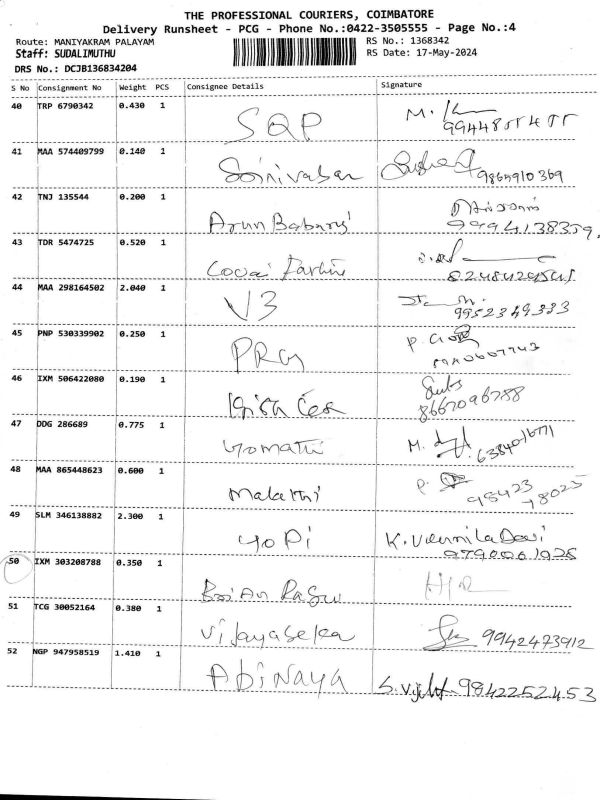 THE PROFESSIONAL COURIERS, COIMBATORE
Delivery Runsheet - PCG - Phone No.:0422-3505555 - Page No.:4
Route: MANIYAKRAM PALAYAM
RS No.: 1368342
Staff: SUDALIMUTHU
RS Date: 17-May-2024
DRS No.: DCJB136834204
S No Consignment No Weight PCS Consignee Details Signature
40 TRP 6790342 0.430 1
SQP M.
41 MAA 574409799 0.140 1
Srinivasan 9865910369
42 TNJ 135544 0.200 1
Arun 9994138359
43 TDR 5474725 0.520 1
Covai
44 MAA 298164502 2.040 1
V3 9952349333
45 PNP 530339902 0.250 1
PRG P.
46 IXM 506422080 0.190 1
8667096788
47 DDG 286689 0.775 1
Gomathi M.
48 MAA 865448623 0.600 1
Malathi P. 98423
78025
49 SLM 346138882 2.300 1
Gopi K. Vennila Devi
9790061926
50 IXM 303208788 0.350 1
51 TCG 30052164 0.380 1
Vijayaseka 9942473912
52 NGP 947958519 1.410 1
Abinaya S. 9842252453